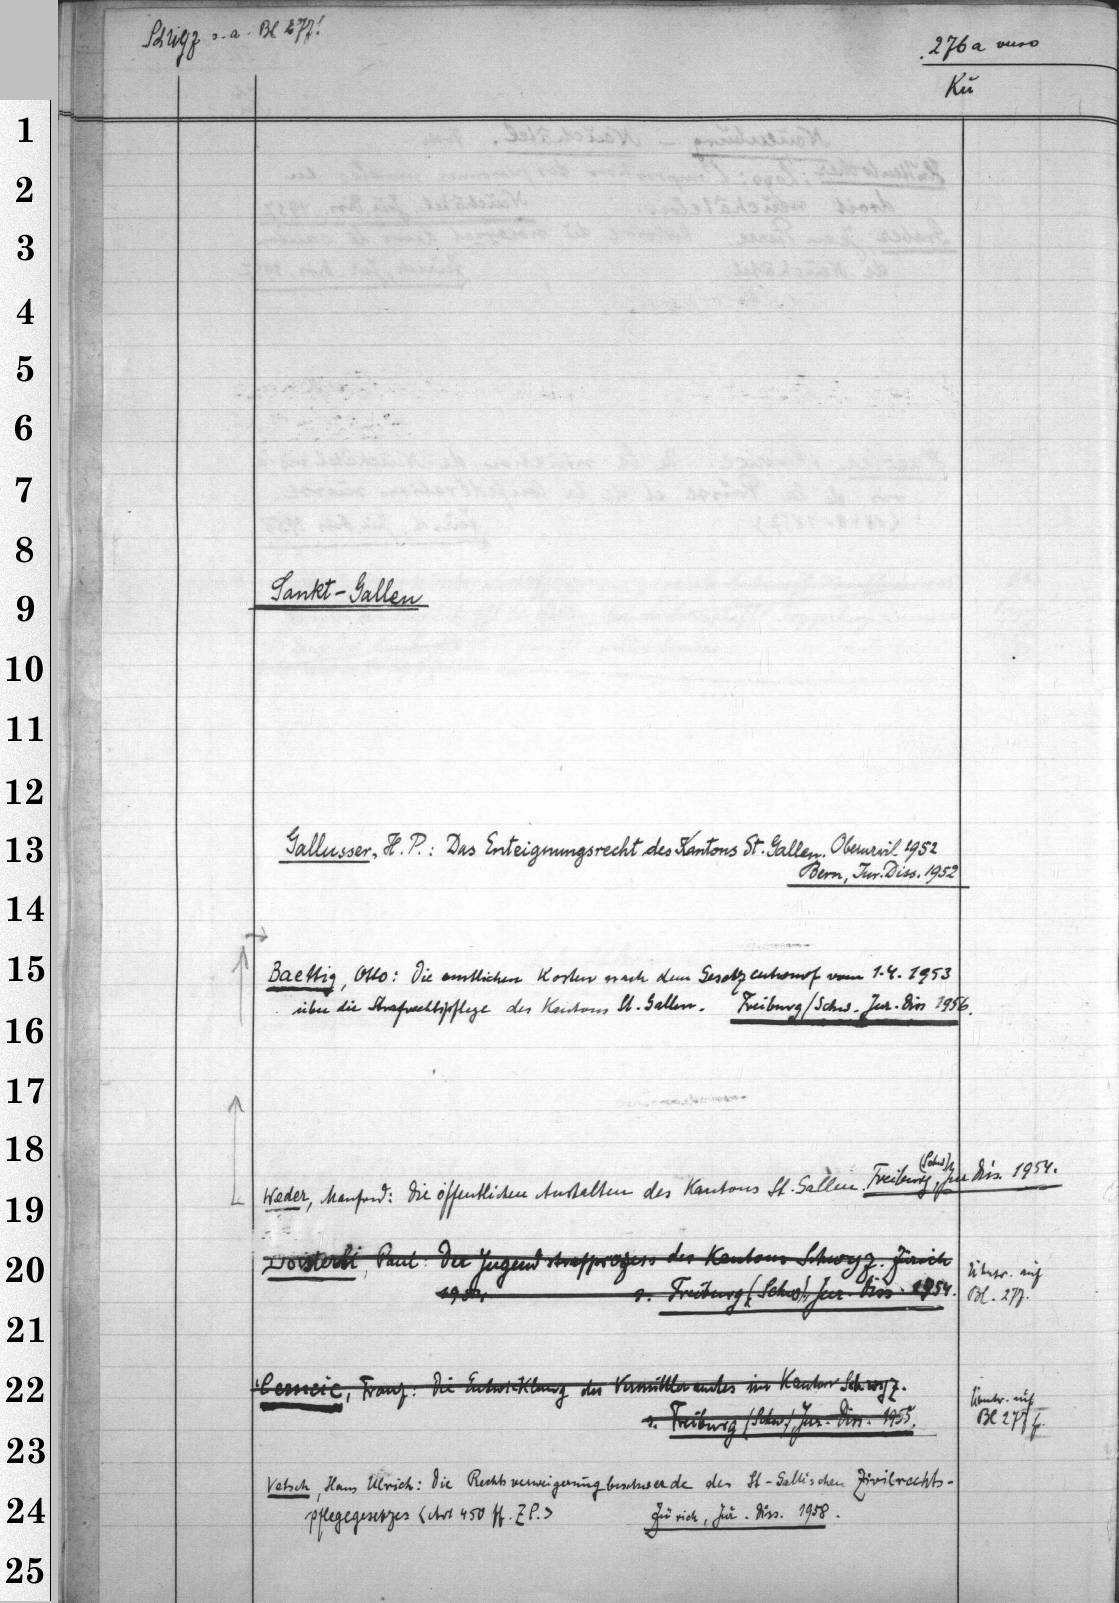 s. a. Bl 277!
276a verso
Kü
1
2
3
4
5
6
7
8
9
10
11
12
13
14
15
16
17
18
19
20
21
22
23
24
25
Sankt-Gallen
Gallusser, H. P.: Das Enteignungsrecht des Kantons St. Gallen. 1952
Bern, Jur. Diss. 1952
Baettig, Otto: Die amtlichen Kosten nach dem Gesetzentwurf vom 1.4.1953
über die Strafrechtspflege des Kantons St. Gallen. Freiburg/Schw. Jur. Diss 1956.
Weder, Manfred: Die öffentlichen Anstalten des Kantons St. Gallen. Freiburg (Schw), Jur Diss. 1954.
Paul: Der Jugendstrafprozess des Kantons Schwyz. Zürich
1954. s. Freiburg (Schw), Jur. Diss. 1954.
Übertr. auf
Bl. 277.
Franz: Die Entwicklung des Vermittleramtes im Kanton Schwyz.
s. Freiburg (Schw), Jur. Diss. 1955.
Übertr. auf
Bl 277 f.
Vetsch, Hans Ulrich: Die Rechtsverweigerungsbeschwerde des St-Gallischen Zivilrechts-
pflegegesetzes <Art 450 ff. ZP.> Zürich, Jur. Diss. 1958.